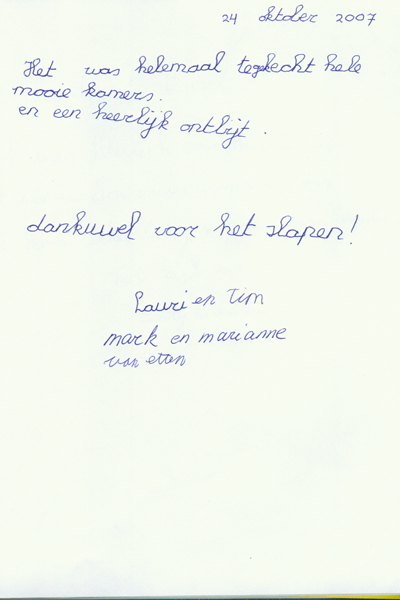 24 oktober 2007
Het was helemaal te gekecht hele
mooie kamers.
en een heerlijk ontbijt.
dankuwel voor het slapen!
Lauri en Tim
mark en marianne
van etten